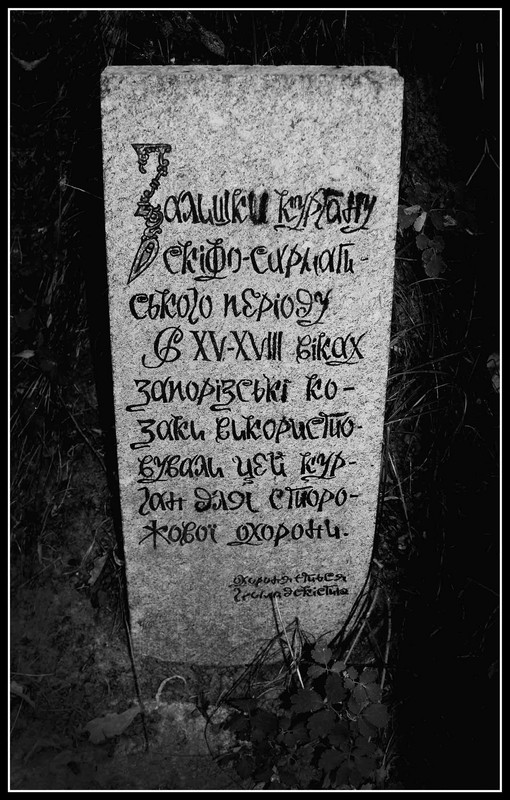 Залишки кургану
скіфо-сармати-
ського періоду
В XV-XVIII віках
запорізські ко-
заки використо-
вували цей кур-
ган для сторо-
жової охорони.
охороняється
громадскістю